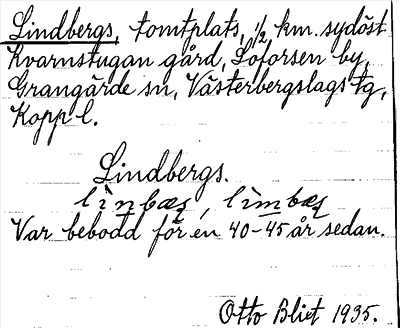 Lindbergs, tomtplats, ½ km. sydöst
Kvarnstugan gård, Loforsen by,
Grangärde sn, Västerbergslags tg,
Kopp l.
Lindbergs.
lìnbæs, lìmbæs
Var bebodd för en 40-45 år sedan.
Otto Blixt 1935.